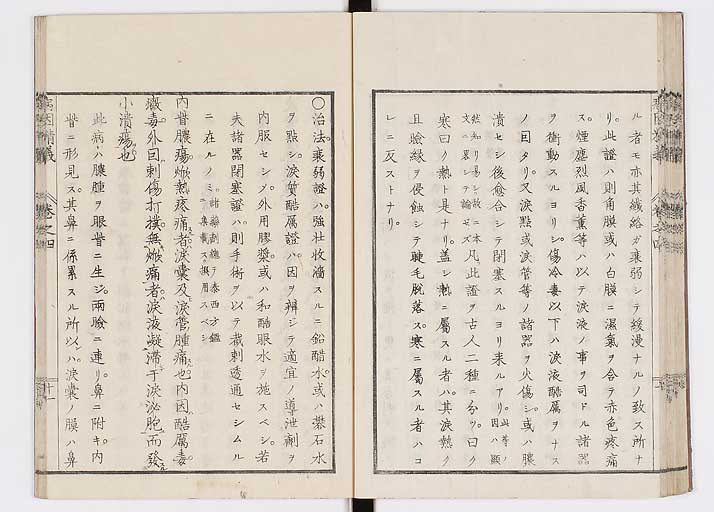 ル者モ亦其纖絡ガ衰弱シテ緩漫ナルノ致ス所ナ
リ此證ハ則角膜或ハ白膜ニ濕氣ヲ含テ赤色疼痛
ス煙塵烈風香薫等ハ以テ淚液ノ事ヲ司ドル諸器
ヲ衝動スルヨリシ傷冷毒以下ハ淚液酷厲ヲナス
ノ因タリ又淚點或淚管等ノ諸器ヲ火傷シ或ハ膿
潰セシ後愈合シテ閉塞スルヨリ来ルアリ此等ノ因ハ顯
然知リ易シ故ニ本文ニ畧シテ論ゼズ凡此證ヲ古人二種ニ分ツ曰ク
寒曰ク熱ト是ナリ蓋シ熱ニ屬スル者ハ其淚熱ク
且瞼緣ヲ侵蝕シテ睫毛脱落ス寒ニ屬スル者ハコ
レニ反ストナリ
〇治法衰弱證ハ強壮收濇スルニ鉛醋水或ハ礬石水
ヲ點シ淚質酷厲證ハ因ヲ辨シテ適宜ノ導泄劑ヲ
内服セシメ外用膠漿或ハ和酷眼水ヲ施スベシ若
夫諸器閉塞證ハ則手術ヲ以テ裁刺透通セシムル
ニ在ルノミ諸藥劑總テ泰西方鑑ニ集載ス撰用スベシ
内眥膿瘍焮熱疼痛者淚囊及淚管腫痛也内因酷厲毒
黴毒外因刺傷打撲無焮痛者淚液凝滞于淚泌胞而發
小潰瘍也
此病ハ膿腫ヲ眼眥ニ生ジ兩瞼ニ連リ鼻ニ附キ内
眥ニ形見ス其鼻ニ係累スル所以ハ淚囊ノ膜ハ鼻
卷之四
十一